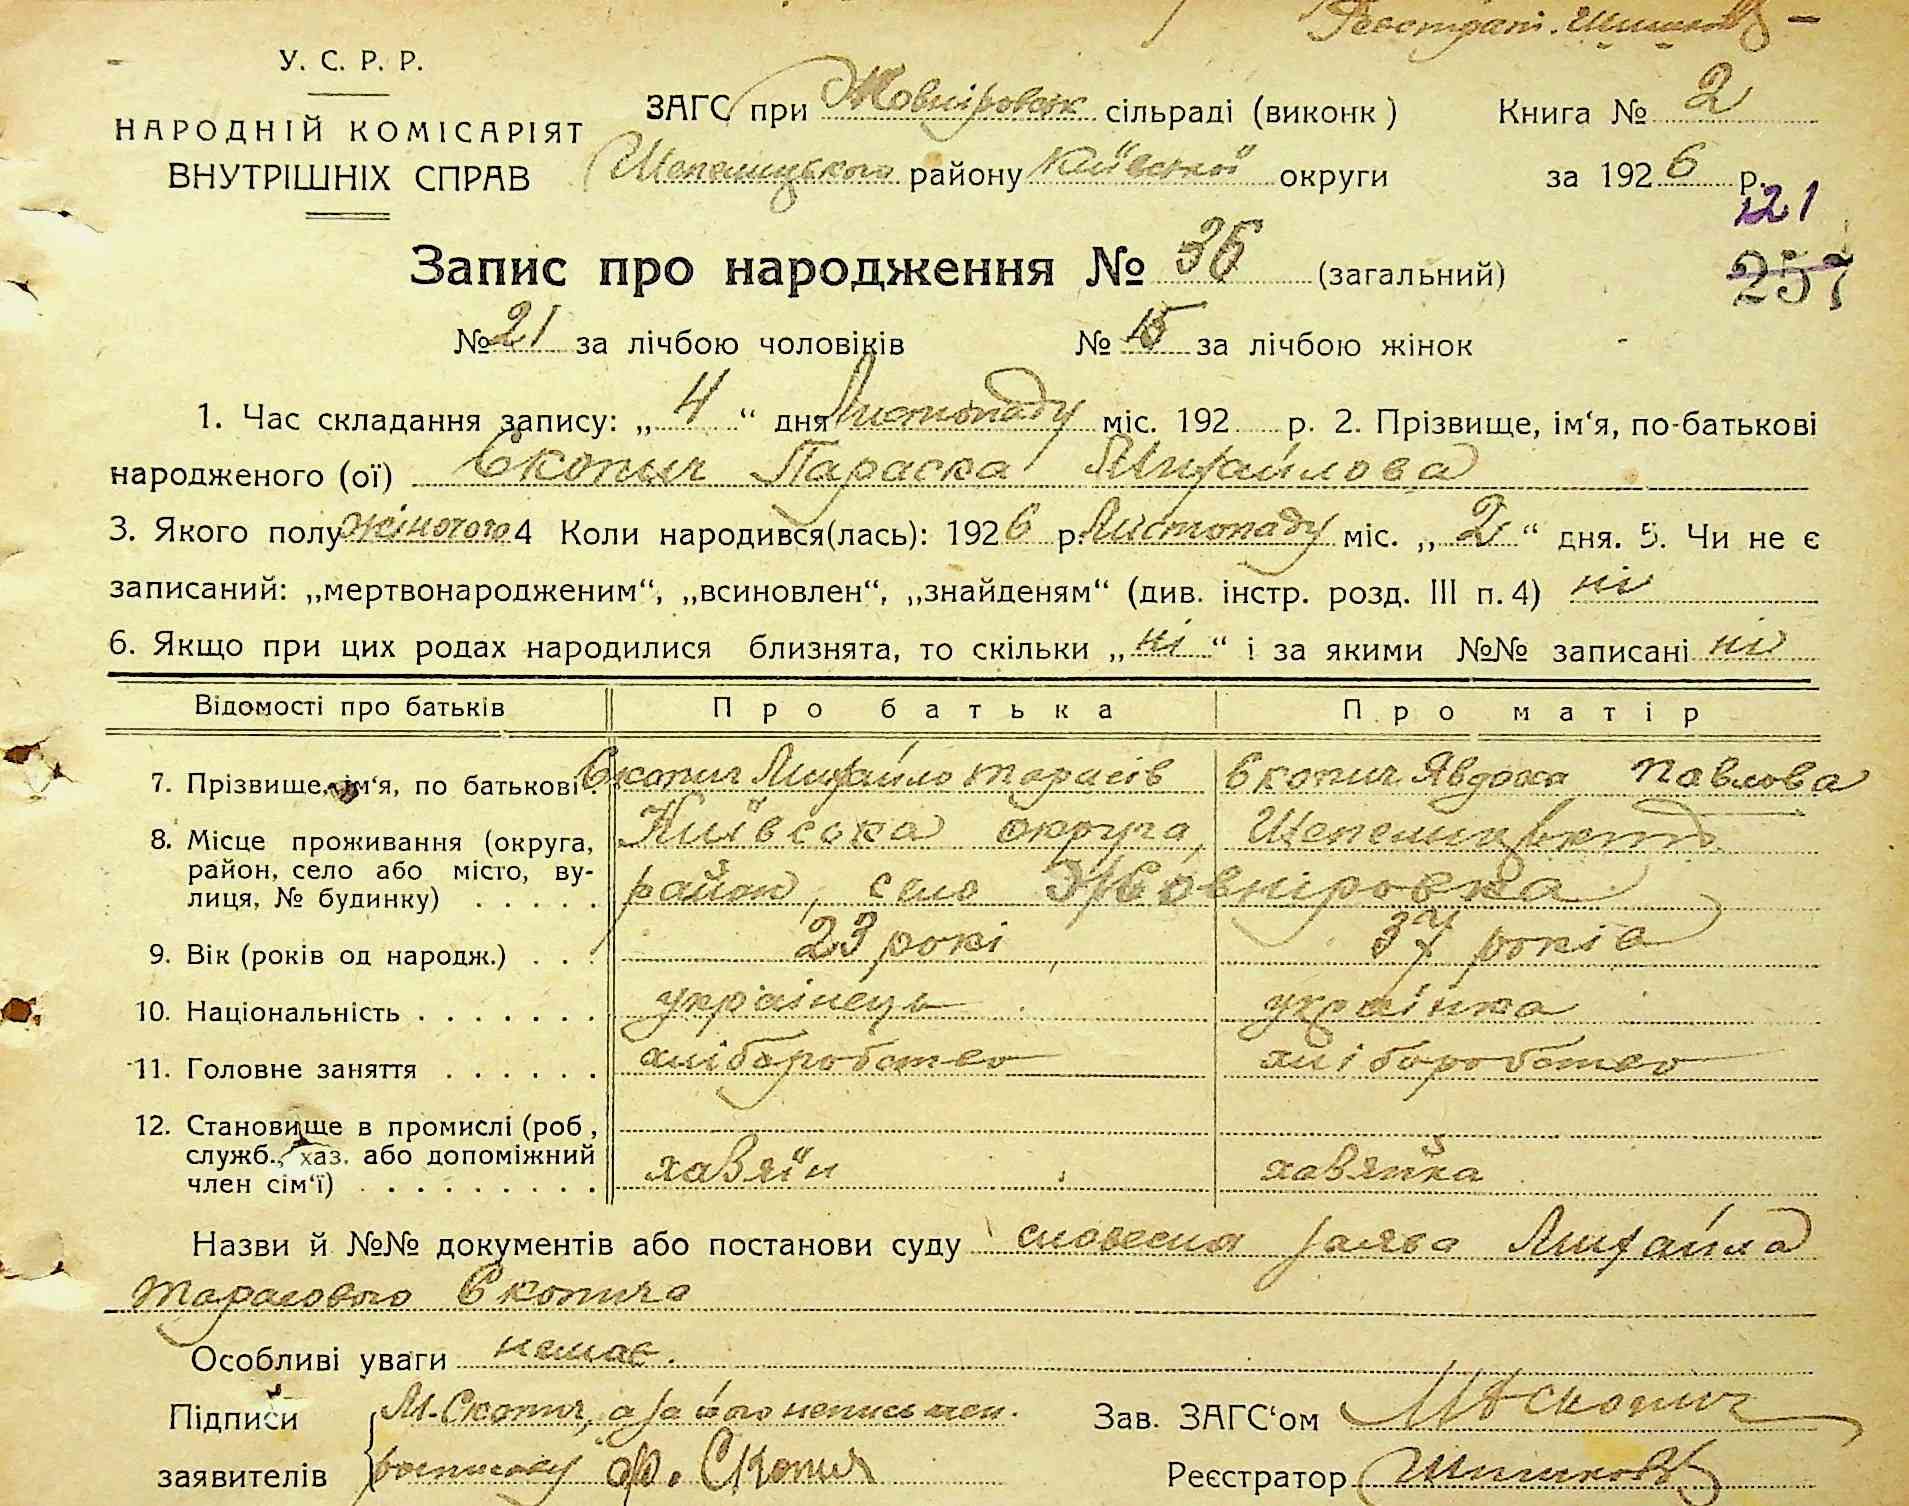 Реєстрат. Шишков
У. С. Р. Р.
НАРОДНІЙ КОМІСАРІЯТ
ВНУТРІШНІХ СПРАВ
ЗАГС при Жовнровськ сільраді (виконк)
Шепелицького району Київської округи
Книга № 2
за 1926 р.
121
257
Запис про народження № 36 (загальний)
№ 21 за лічбою чоловіків № 15 за лічбою жінок
1. Час складання запису: „ 4 “ дня Листопаду міс. 192 р. 2. Прізвище, ім‘я, по-батькові
народженого (ої) Скопич Параска Михайлова
3. Якого полу жіночого 4 Коли народився(лась): 1926 р. Листопаду міс. „ 2 “ дня. 5. Чи не є
записаний: „мертвонародженим“, „всиновлен“, „знайденям“ (див. інстр. розд. III п. 4) ні
6. Якщо при цих родах народилися близнята, то скільки „ ні “ і за якими №№ записані ні
Відомості про батьків Про батька Про матір
7. Прізвище, ім‘я, по батькові Скопич Михайло Тарасів Скопич Явдоха Павлова
8. Місце проживання (округа, Київська округа, Шепелицький
район, село або місто, ву-
лиця, № будинку) район, село Жовніровка
9. Вік (років од народж.) 23 рокі 37 років
10. Національність українець українка
11. Головне заняття хліборобство хліборобство
12. Становище в промислі (роб,
служб., хаз. або допоміжний
член сім‘ї) хазяїн хазяйка
Назви й №№ документів або постанови суду словесна заява Михайла
Тарасового Скопича
Особливі уваги немає.
Підписи М. Скопич, а за його неписьмен.
заявителів росписався Ф. Скопич
Зав. ЗАГС‘ом Скопич
Реєстратор Шишков